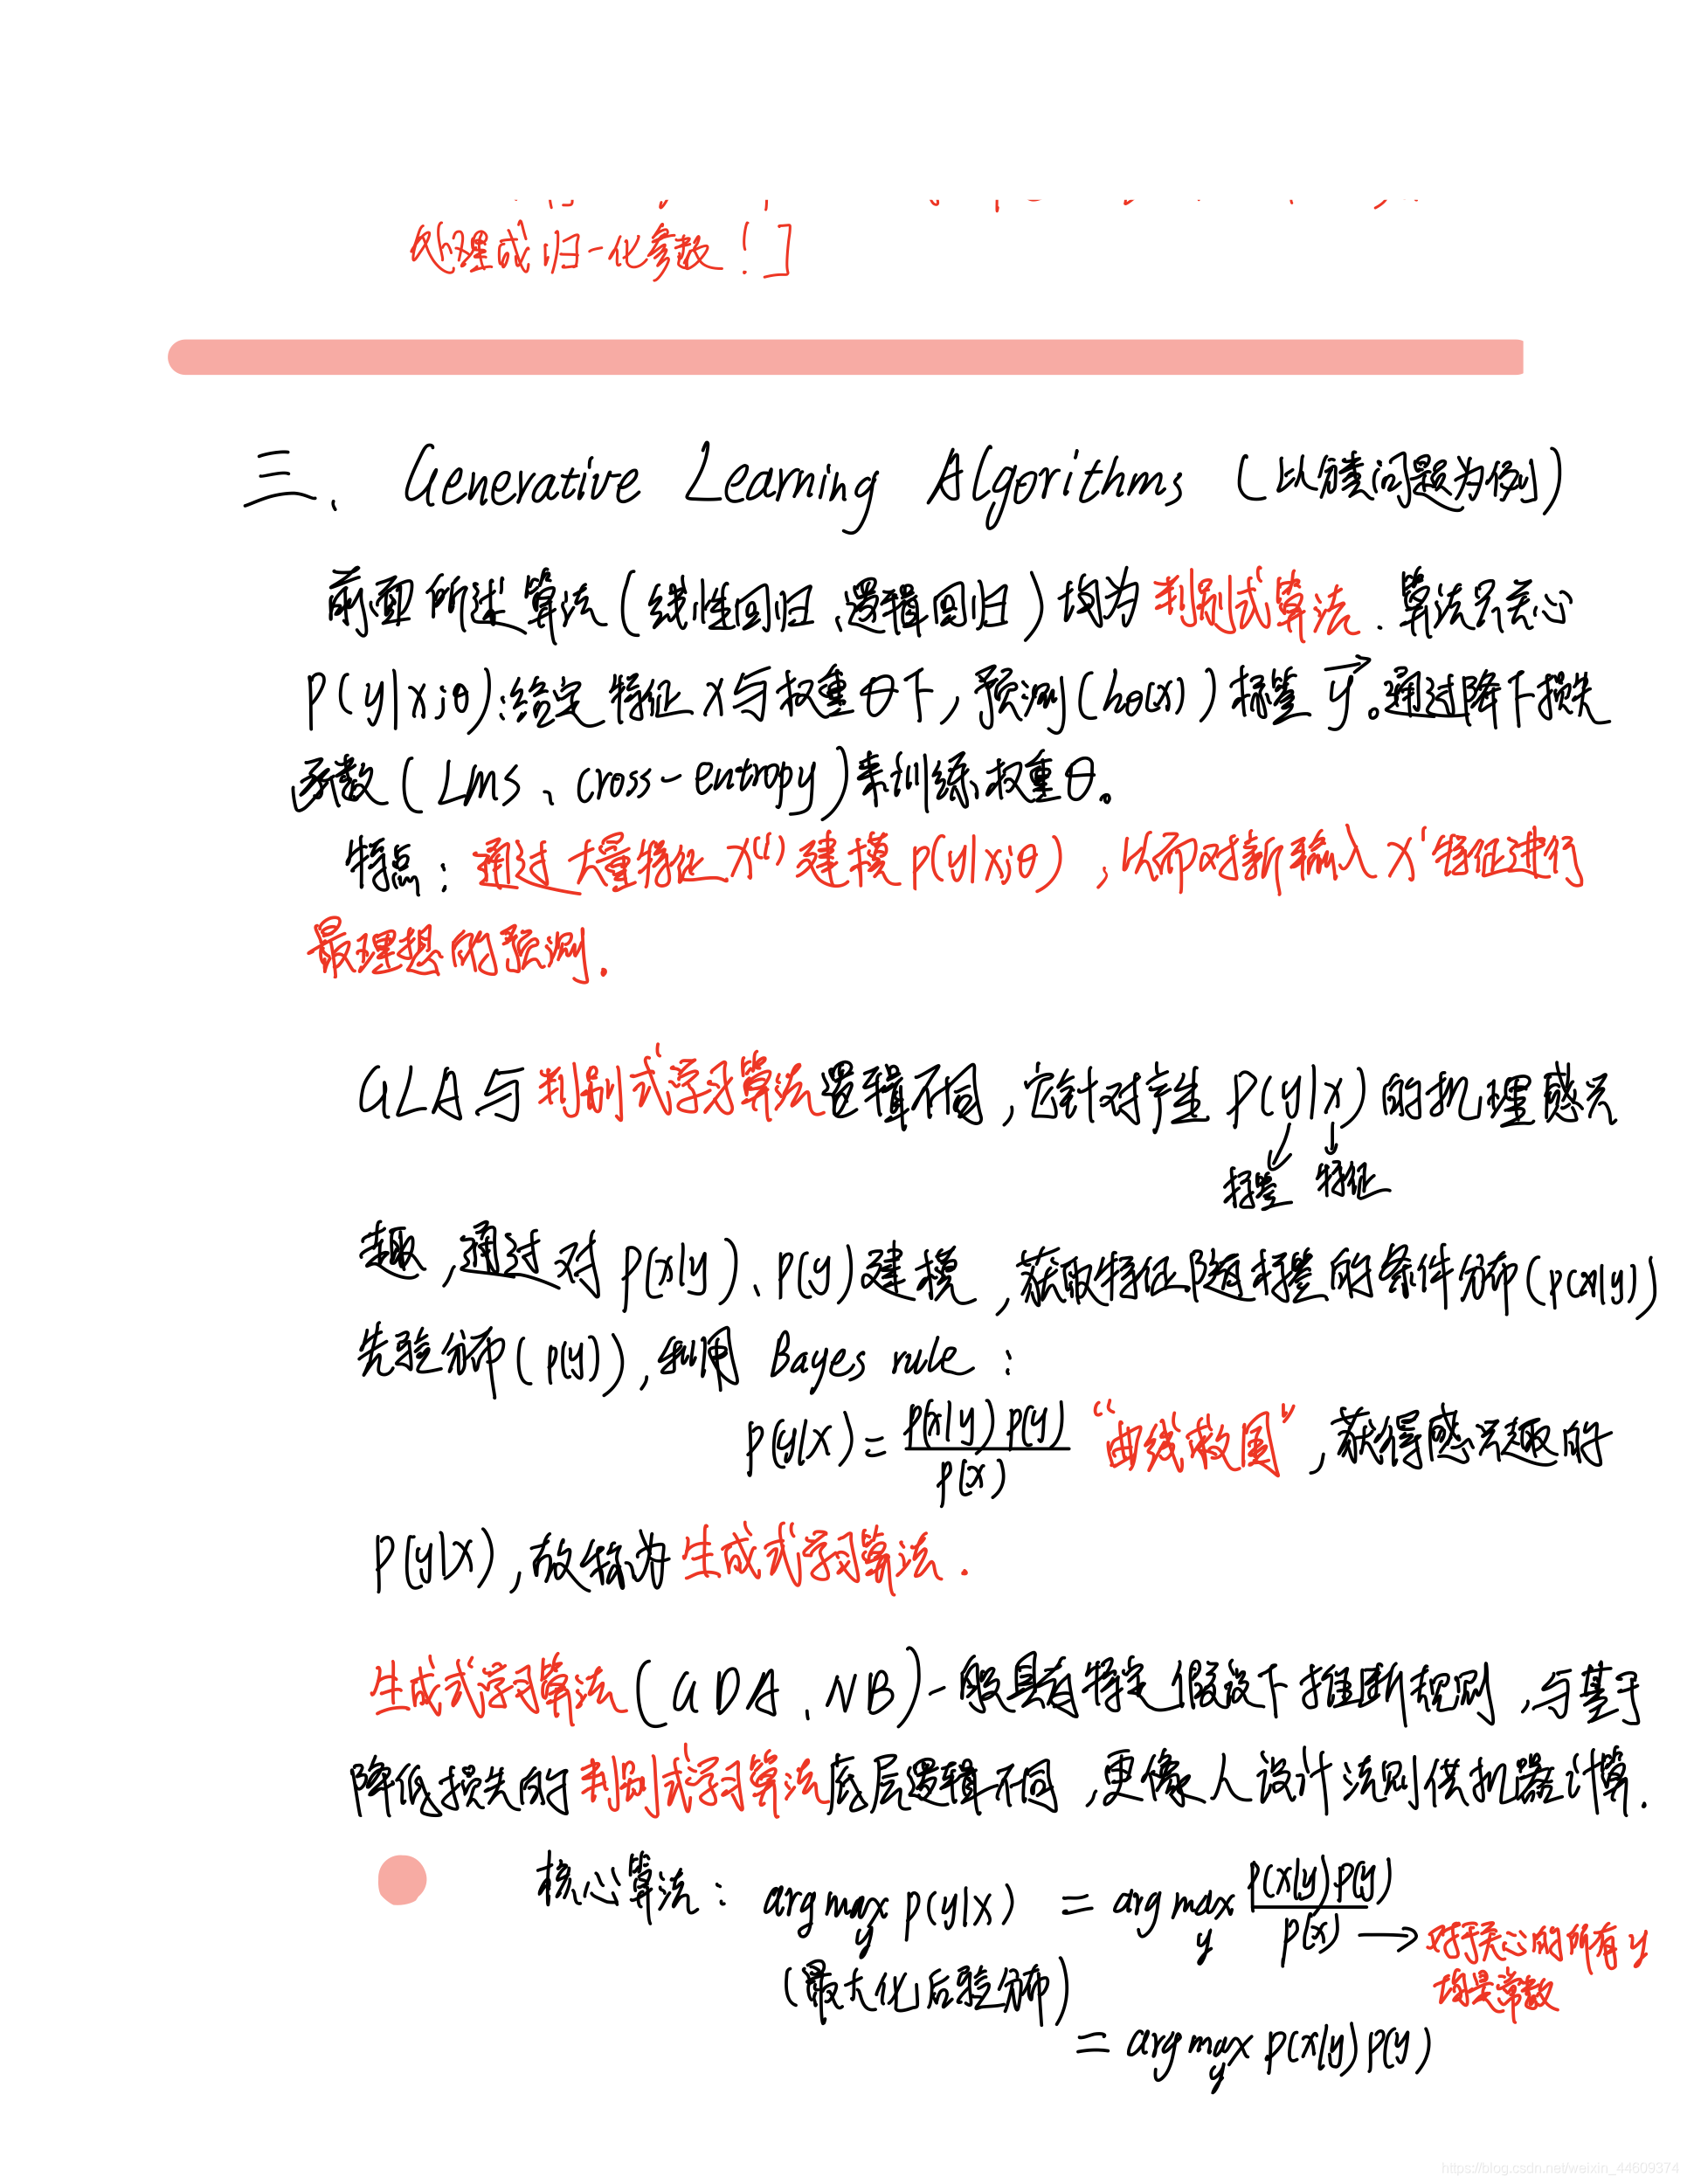 处理成归一化参数！]
三、Generative Learning Algorithms (以分类问题为例)
前面所述算法(线性回归、逻辑回归)均为判别式算法.算法只关心
P(y|x;θ):给定特征x与权重θ下,预测(hθ(x))标签y。通过降下损失
函数(Lms、cross-entropy)来训练权重θ。
特点:通过大量特征x⁽ⁱ⁾建模p(y|x;θ),从而对新输入x'特征进行
最理想的预测.
GLA与判别式学习算法逻辑不同,它针对产生P(y|x)的机理感兴
标签 特征
趣,通过对p(x|y)、p(y)建模,获取特征随标签的条件分布(p(x|y))
先验分布(p(y)),利用Bayes rule:
p(y|x)=p(x|y)p(y)/p(x) “曲线救国”,获得感兴趣的
P(y|x),故称为生成式学习算法.
生成式学习算法(GDA、NB)一般具有特定假设下推断规则,与基于
降低损失的判别式学习算法底层逻辑不同,更像人设计法则供机器计算.
核心算法: arg max_y p(y|x) = arg max_y p(x|y)p(y)/p(x) → 对于关心的所有y
(最大化后验分布) 均是常数
= arg max_y p(x|y)p(y)
https://blog.csdn.net/weixin_44609374